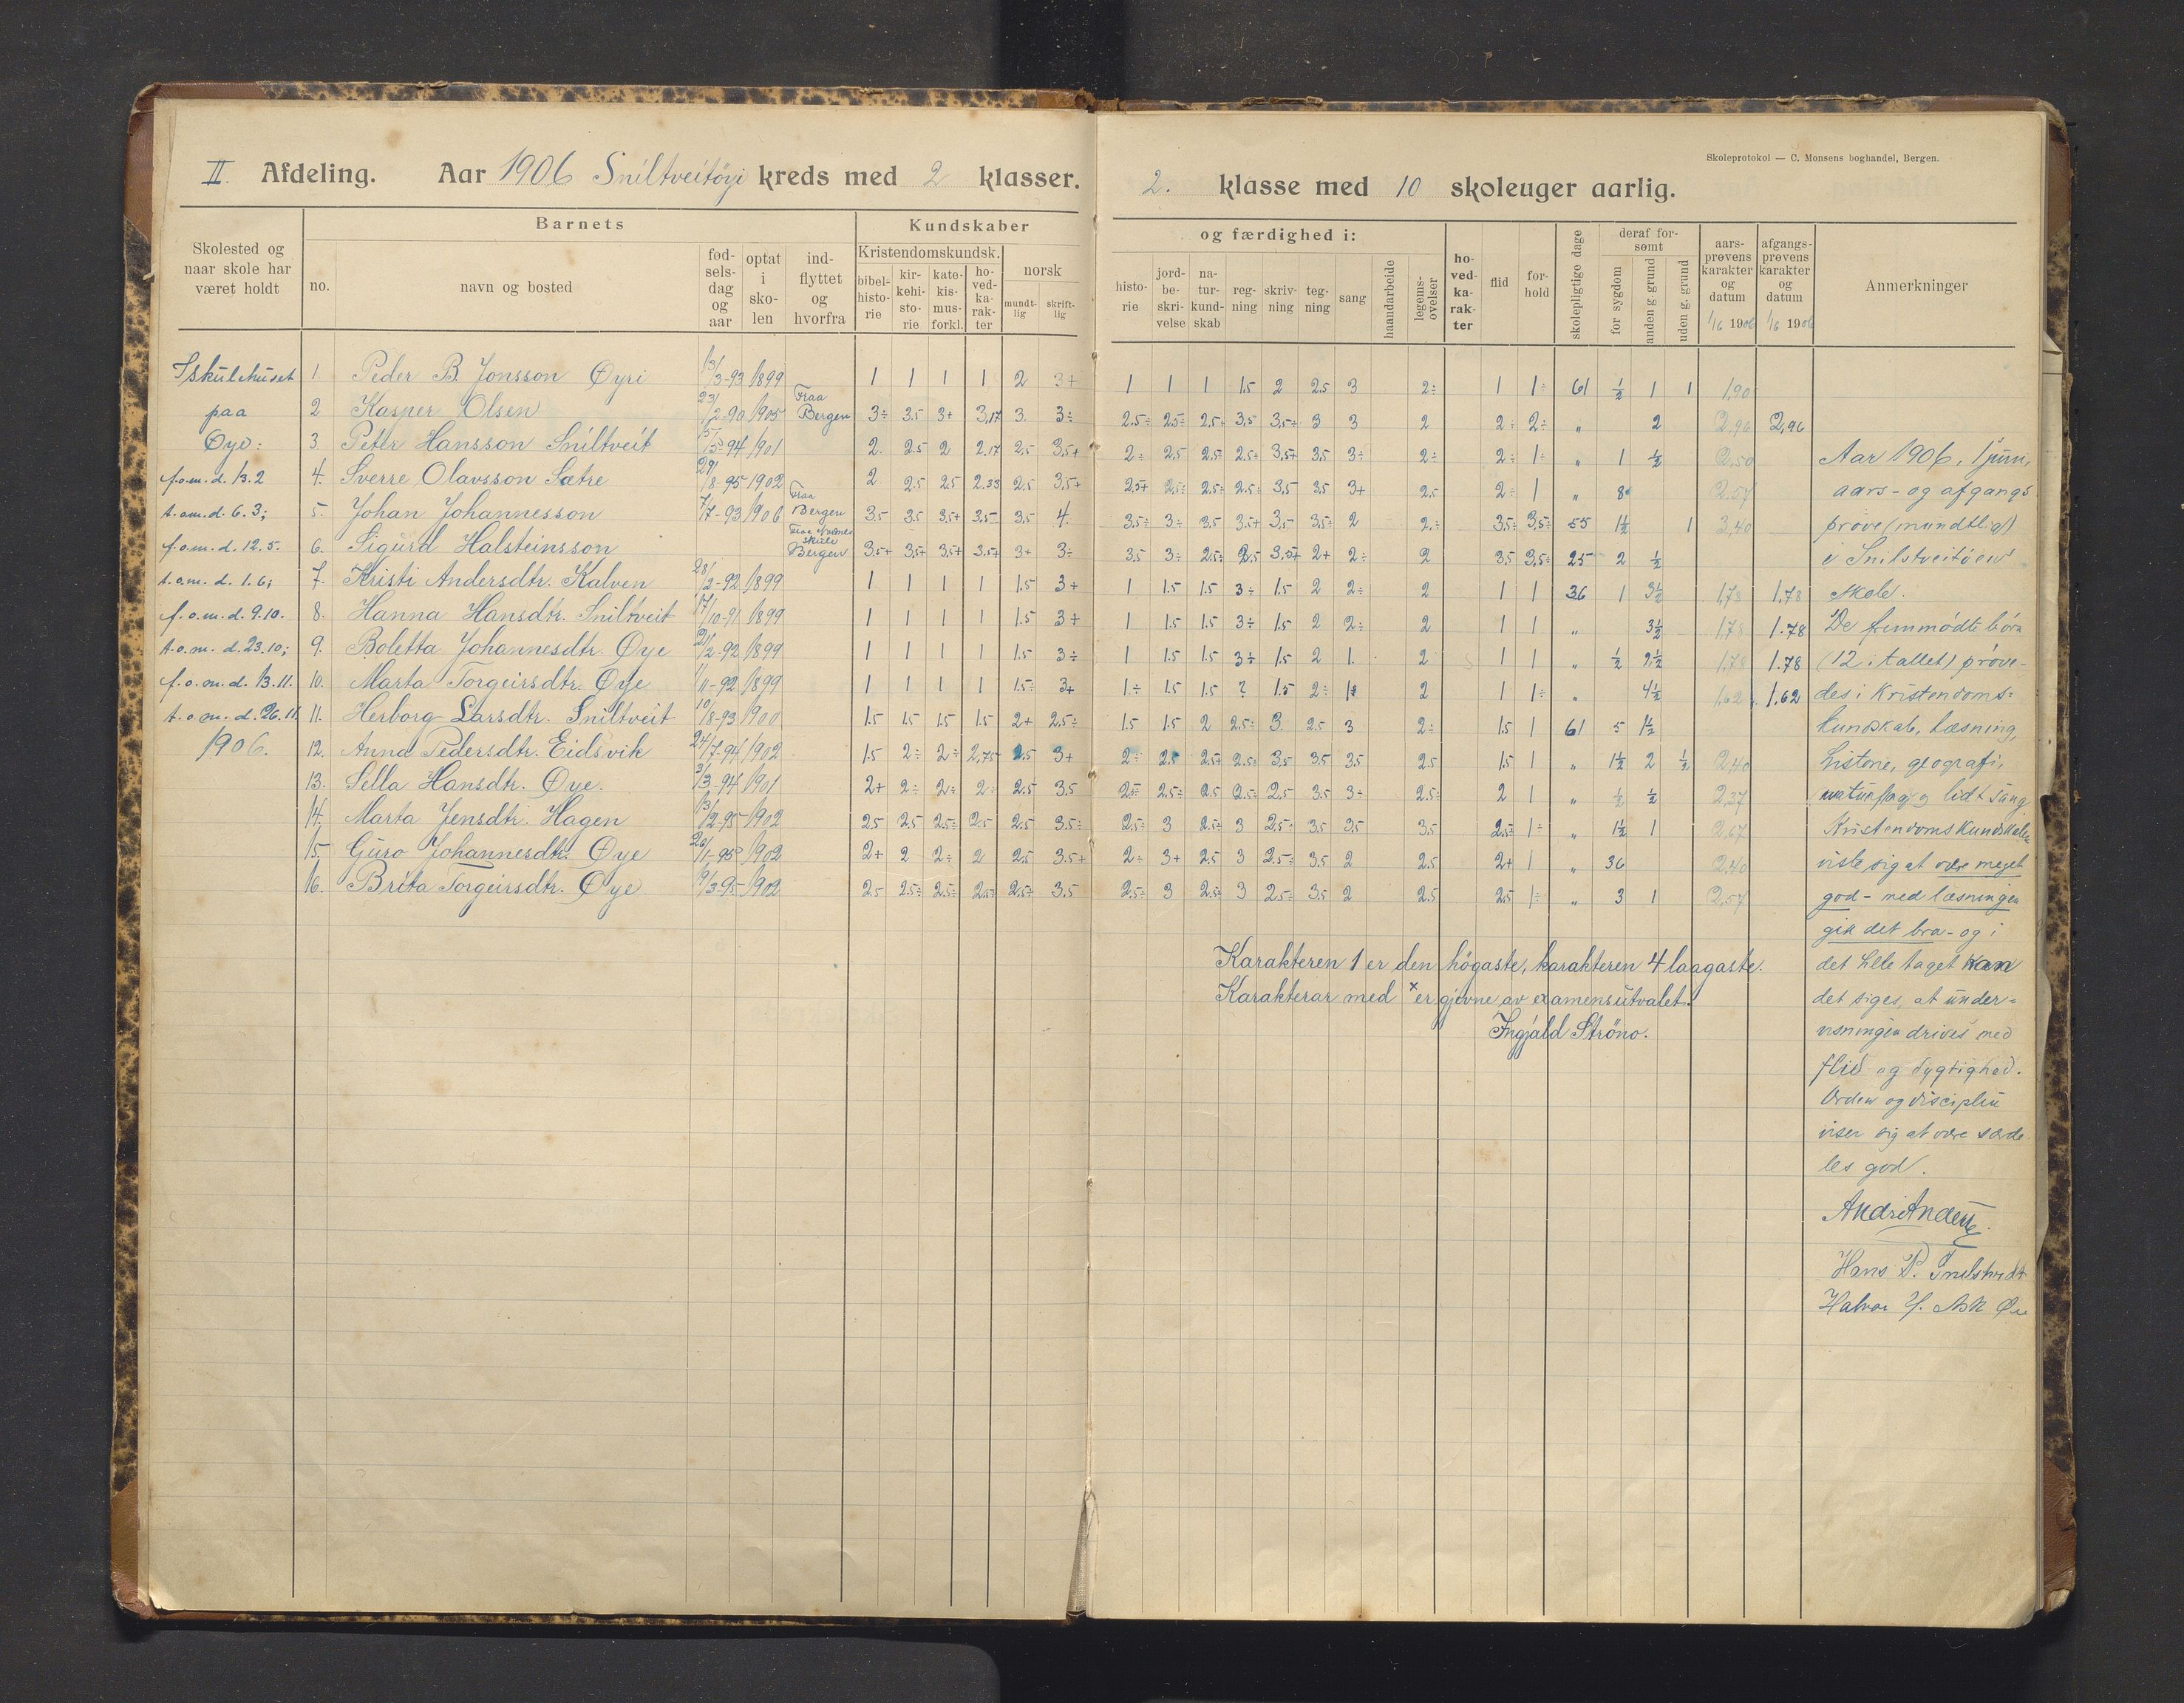 II. Afdeling. Aar 1906 Sniltveitöyi kreds med 2 klasser.
2. klasse med 10 skoleuger aarlig.
Skoleprotokol — C. Monsens boghandel, Bergen.
Skolested og naar skole har været holdt
Barnets
no.
navn og bosted
fødselsdag og aar
optat i skolen
indflyttet og hvorfra
Kundskaber
Kristendomskundsk.
bibelhistorie
kirkehistorie
katekismusforkl.
hovedkarakter
norsk
mundtlig
skriftlig
og færdighed i:
historie
jordbeskrivelse
naturkundskab
regning
skrivning
tegning
sang
haandarbeide
legemsøvelser
hovedkarakter
flid
forhold
skolepligtige dage
deraf forsømt
for sygdom
anden g. grund
uden g. grund
aarsprøvens karakter og datum 1/6 1906
afgangsprøvens karakter og datum 1/6 1906
Anmerkninger
I skulehuset
paa
Øye:
f.o.m.d. 13.2
t.o.m.d. 6.3;
f.o.m.d. 12.5.
t.o.m.d. 1.6;
f.o.m.d. 9.10.
t.o.m.d. 23.10;
f.o.m.d. 13.11.
t.o.m.d. 26.11.
1906.
1. Peder B. Jonsson Øyri 13/3-93 1899 1 1 1 1 2 3+ 1 1 1 1.5 2 2.5 3 2÷ 1 1÷ 61 ½ 1 1 1,90
2. Kasper Olsen 23/2-90 1905 Fraa Bergen 3÷ 3.5 3+ 3,17 3. 3÷ 2.5÷ 2.5÷ 2.5+ 3,5 3,5+ 3 3 2 2÷ 2÷ " 2 2,96 2,96
3. Peter Hansson Sniltveit 15/5-94 1901 2. 2.5 2 2.17 2.5 3.5+ 2÷ 2.5 2.5÷ 2.5+ 3,5+ 3.5 3÷ 2÷ 2÷ 1÷ " 1 ½ 2,50
4. Sverre Olavsson Sætre 29/8-95 1902 2 2.5 2.5 2.33 2.5 3.5+ 2.5+ 2.5÷ 2.5+ 2.5÷ 3.5 3.5 3+ 2.5 2÷ 1 " 8 2.57
5. Johan Johannesson 7/7-93 1906 Fraa Bergen 3.5 3.5 3.5+ 3.5 3.5 4. 3.5÷ 3÷ 3.5 3.5+ 3.5 3.5÷ 2 2÷ 3.5÷ 3,5÷ 55 1½ 1 3,40
6. Sigurd Halsteinsson Bergen 3.5+ 3.5+ 3.5+ 3.5+ 3+ 3÷ 3.5 3÷ 2.5÷ 2.5 3.5+ 2+ 2÷ 2 3.5 3.5÷ 25 2 ½
7. Kristi Andersdtr. Kalven 28/2-92 1899 1 1 1 1 1.5 3+ 1 1.5 1.5 3÷ 1.5 2 2÷ 2 1 1 36 1 3½ 1,78 1,78
8. Hanna Hansdtr. Sniltveit 17/10-91 1899 1 1 1 1 1.5 3+ 1 1.5 1.5 3÷ 1.5 2 2÷ 2 1 1 " 3½ 1,78 1.78
9. Boletta Johannesdtr. Øye 21/2-92 1899 1 1 1 1 1.5 3÷ 1 1.5 1.5 3÷ 1.5 2 1. 2 1 1 " ½ 2½ 1,78 1.78
10. Marta Torgeirsdtr. Øye 11-92 1899 1 1 1 1 1.5÷ 3+ 1÷ 1.5 1.5 ? 1.5 2÷ 1 2 1 1÷ " 4½ 1,62 1.62
11. Herborg Larsdtr. Sniltveit 10/8-93 1900 1.5 1.5 1.5 1.5 2+ 2.5÷ 1.5 1.5 2 2.5÷ 3. 2.5 3 2÷ 1.5 1 61 5 1½
12. Anna Pedersdtr. Eidsvik 24/7-94 1902 1.5 2÷ 2÷ 2,75 2.5 3+ 2÷ 2.5 2.5+ 2.5÷ 3.5 3.5 3.5 2.5 1.5 1 " 1½ 2 ½ 2,40
13. Sella Hansdtr. Øye. 3/3-94 1901 2+ 2÷ 2÷ 2÷ 2.5 3.5 2.5 2.5÷ 2.5 2.5÷ 2.5 3.5 3÷ 2.5÷ 2 1 " ½ ½ 2,37
14. Marta Jensdtr. Hagen 13/2-95 1902 2.5 2.5 2.5÷ 2.5 2.5 3.5÷ 2.5÷ 3 2.5÷ 3 2.5÷ 3.5 3.5 3.5 2.5 1÷ " 1½ 1 2,67
15. Guro Johannesdtr. Øye 26/1-95 1902 2+ 2 2÷ 2 2.5 3.5+ 2÷ 3+ 2.5 3 2.5÷ 3.5 2 2.5 2+ 1 " 36 2,40
16. Brita Torgeirsdtr. Øye 9/3-95 1902 2.5 2.5÷ 2.5÷ 2.5÷ 2.5÷ 3.5 2.5÷ 3 2.5÷ 3 2.5÷ 3.5 2 2.5 2.5 1÷ " 3 1 2,57
Karakteren 1 er den högaste, karakteren 4 laagaste.
Karakterar med × er gjevne av examensutvalet.
Ingjald Ströno.
Aar 1906, 1 juni,
aars- og afgangs
prøve (mundtlig)
i Snilstveitöens
skole.
De fremmødte børn
(12 i tallet) prøve-
des i kristendoms-
kundskab, læsning,
historie, geografi,
naturfag og lidt sang
Kristendomskundskaben
viste sig at være meget
god - med læsningen
gik det bra - og i
det hele taget kan
det siges, at under-
visningen drives med
flid og dygtighed.
Orden og disciplin
viser sig at være særde-
les god.
Hans P. Snilstveidt
Halvor J. Ask Øie